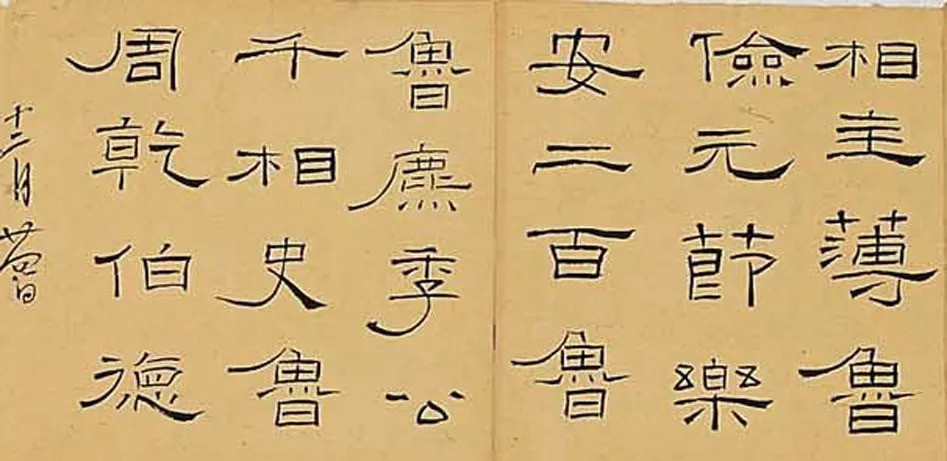 相主薄魯
儉元節樂
安二百魯
魯麃季公
千相史魯
周乾伯德
十二月